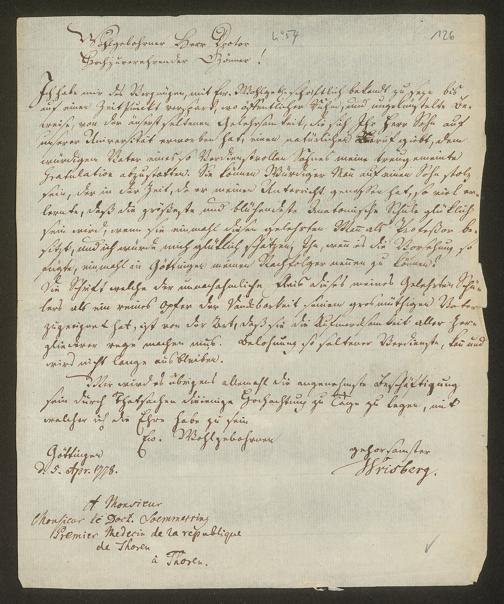 No 54
126
Wohlgebohrner Herr Doctor
Hochzuverehrender Gönner!
Ich habe mir das Vergnügen, mit Ew. Wohlgeb. schriftlich bekandt zu seyn bis
auf einen Zeitpunkt verspart, wo öffentlicher Ruhm, und ungekünstelte Be-
weise, von der äuserst seltenen Gelehrsamkeit, die sich Ihr Herr Sohn auf
unserer Universität erworben hat, einen natürlichen Beruf giebt, dem
würdigen Vater eines so Verdienstvollen Sohnes meine treugemeinte
Gratulation abzustatten. Sie können Würdiger Mann auf einen Sohn stolz
seyn, der in der Zeit, da er meinen Unterricht genossen hat, so viel er-
lernte, daß die größeste und blühendeste Anatomische Schule glücklich
seyn wird, wenn sie einmahl diesen gelehrten Mann als Professor be-
sitzt, und ich würde mich glücklich schätzen, Ihn, wenn es die Vorsehung so
fügte, einmahl in Göttingen meinen Nachfolger nennen zu können.
Die Schrift welche der unnachahmliche Fleis dieses meines Gelehrten Schü-
lers als ein reines Opfer der Dankbarkeit seinem grosmüthigen Vater
zugeeignet hat, ist von der Art, daß sie die Aufmerksamkeit aller Zer-
gliederer rege machen mus. Belohnung so seltener Verdienste, kan und
wird nicht lange ausbleiben.
Mir wird es übrigens allemahl die angenehmste Beschäftigung
seyn durch Thatsachen diejenige Hochachtung zu Tage zu legen, mit
welcher ich die Ehre habe zu seyn
Ew. Wohlgebohrnen
Göttingen
d. 5. Apr. 1778.
gehorsamster
Wrisberg.
A Monsieur
Monsieur le Doct. Soemmerring
Premier Medecin de la république
de Thoren
à Thoren.